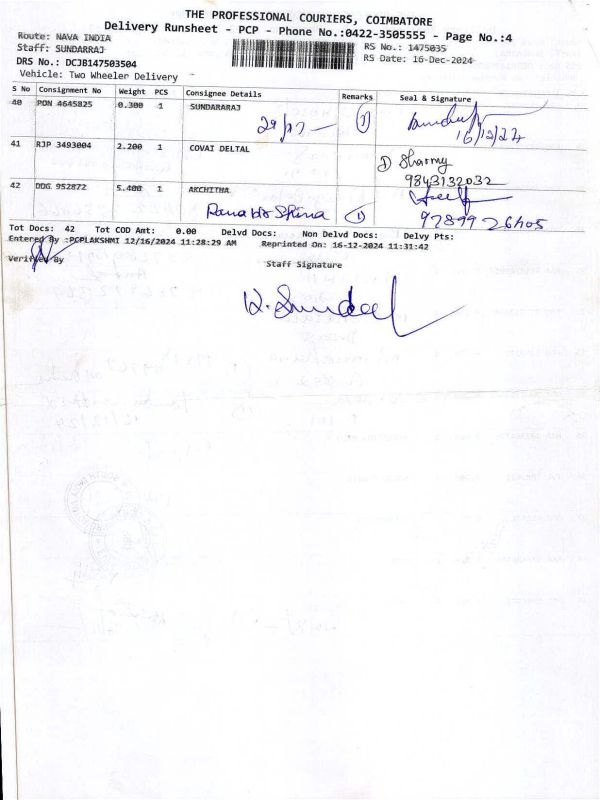 THE PROFESSIONAL COURIERS, COIMBATORE
Delivery Runsheet - PCP - Phone No.:0422-3505555 - Page No.:4
Route: NAVA INDIA
RS No.: 1475035
Staff: SUNDARRAJ
RS Date: 16-Dec-2024
DRS No.: DCJB147503504
Vehicle: Two Wheeler Delivery
S No Consignment No Weight PCS Consignee Details Remarks Seal & Signature
40 PON 4645825 0.300 1 SUNDARARAJ
16/12/24
41 RJP 3493004 2.200 1 COVAI DELTAL
① Sharmy
9843132032
42 DDG 952872 5.400 1 AKCHITHA
①
Tot Docs: 42 Tot COD Amt: 0.00 Delvd Docs: Non Delvd Docs: Delvy Pts:
Entered By :PCPLAKSHMI 12/16/2024 11:28:29 AM Reprinted On: 16-12-2024 11:31:42
Verified By
Staff Signature